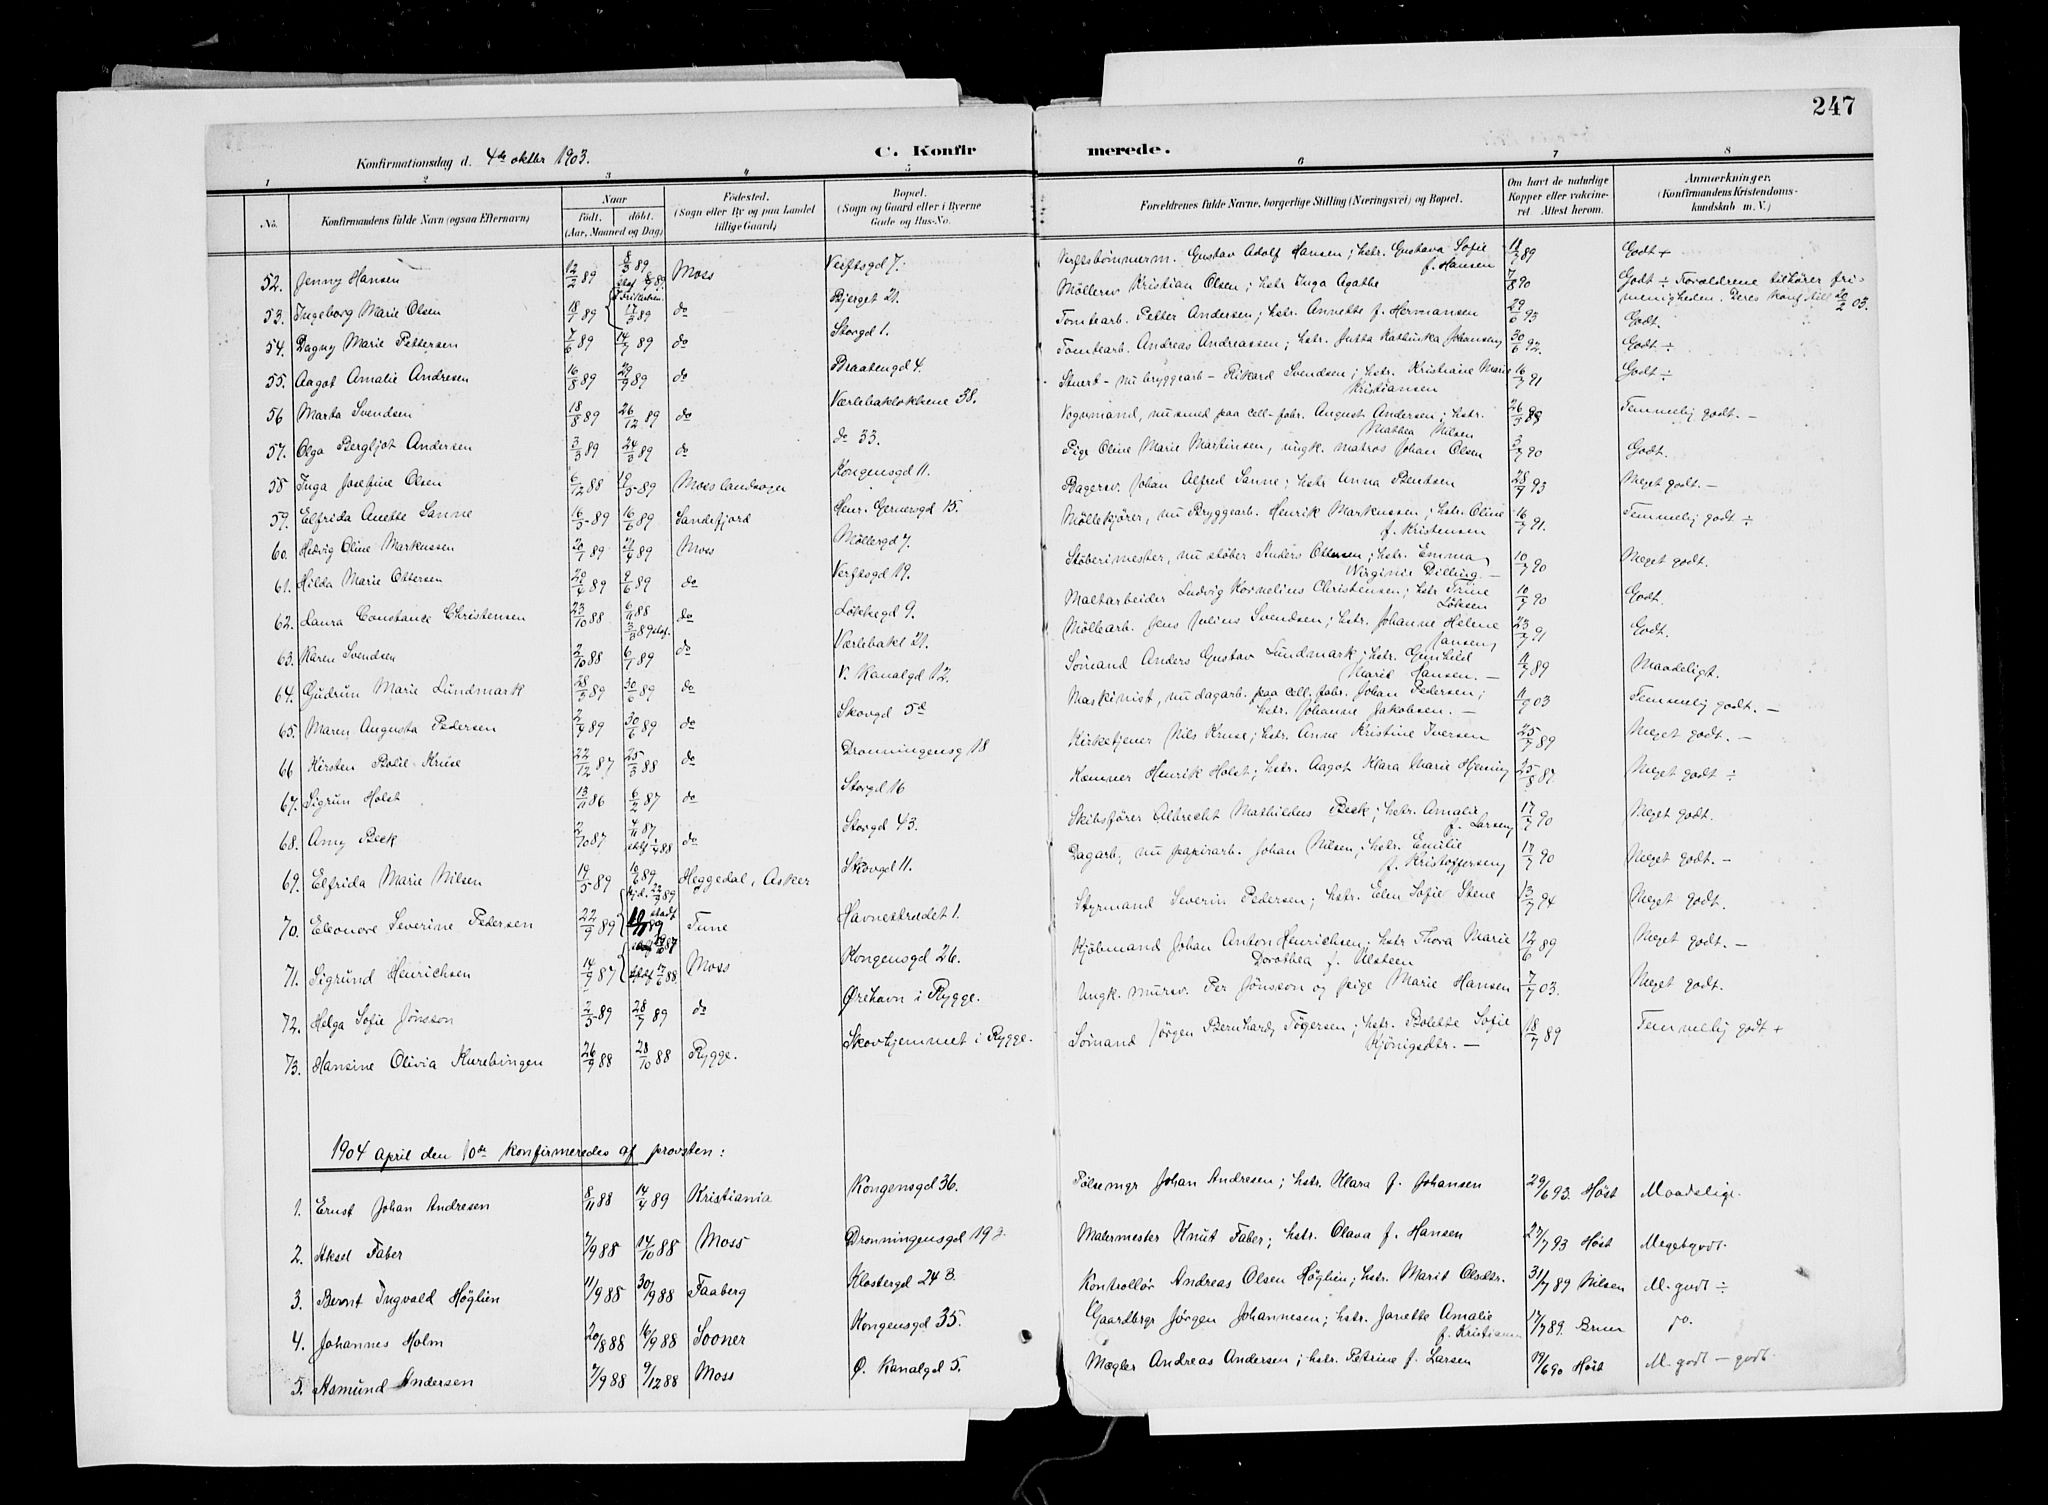 247
Konfirmationsdag d. 4de oktbr 1903.
C. Konfir merede.
1 2 3 4 5 6 7 8
No.
Konfirmandens fulde Navn (ogsaa Efternavn)
Naar
født. døbt.
(Aar, Maaned og Dag)
Fødested.
(Sogn eller By og paa Landet
tillige Gaard)
Bopæl.
(Sogn og Gaard eller i Byerne
Gade og Hus-No.
Forældrenes fulde Navne, borgerlige Stilling (Næringsvei) og Bopæl.
Om havt de naturlige
Kopper eller vakcine-
ret. Attest herom.
Anmærkninger.
(Konfirmandens Kristendoms-
kundskab m. V.)
52. Jenny Hansen 12/2 89 8/3 89 Moss Verftsgd 7. Gustav Adolf Hansen; hstr. Gustava Sofie f. Hansen 11/7 89 Godt +
53. Ingeborg Marie Olsen 18/1 89 17/3 89 do Bjerget 21. Møllersv. Kristian Olsen; hstr Inga Agathe 7/8 90 Godt ÷ Forældrene tilhører fri-
menigheden. Deres konf. till. 20/2 03.
54. Dagny Marie Pettersen 7/6 89 14/7 89 do Storgd 1. Tomtearb. Petter Andersen; hstr. Annette f. Hermansen 29/6 93 Godt.
55. Aagot Amalie Andresen 16/8 89 29/9 89 do Braatengd 4. Tomtearb. Andreas Andreassen; hstr. Jutta Kathinka Johansen 30/6 92. Godt ÷
56 Marta Svendsen 18/8 89 26/12 89 do Værlebakløkkene 38. Stuert - nu bryggearb - Rikard Svendsen; hstr. Kristiane Marie
Kristiansen 16/7 91 Godt ÷
57. Olga Bergljot Andersen 3/3 89 24/3 89 do do 33. Vognmand, nu smed paa cell-fabr. August Andersen; hstr.
Mathea Nilsen 26/5 98 Temmelig godt. -
58 Inga Josefine Olsen 6/12 88 19/5 89 Moss landsogn Kongensgd 11. Pige Oline Marie Martinsen, ungk. matros Johan Olsen 3/7 90 Godt.
59. Elfrida Anette Sanne 16/5 89 16/6 89 Sandefjord Henr. Gernersgd 15. Bagersv. Johan Alfred Sanne; hstr Anna Bentsen 28/7 93 Meget godt. -
60. Hedvig Oline Markussen 20/1 89 21/4 89 Moss Møllergd 7. Møllekjører, nu Bryggearb. Henrik Markussen; hstr. Oline
f. Kristensen 16/7 91. Temmelig godt ÷
61. Hilda Marie Ottersen 20/6 89 9/6 89 do Verftsgd 19. Støberimester, nu støber Anders Ottersen; hstr. Emma
Virginie Dilling - 10/7 90 Meget godt.
62. Laura Constance Christensen 23/10 88 6/11 88 3/3 89 staf. do Løkkegd 9. Maltarbeider Ludvig Kornelius Christensen; hstr Trine
Løken 10/7 90 Godt.
63. Karen Svendsen 2/10 88 6/1 89 do Værlebakl 21. Møllearb. Jens Julius Svendsen; hstr. Johanne Helene
Jansen 23/7 91 Godt.
64. Gudrun Marie Lundmark 28/3 89 30/6 89 do V. Kanalgd 12. Sømand Anders Gustav Lundmark; hstr. Gunhild
Marie Hansen. - 11/7 89 Maadeligt.
65. Maren Augusta Pedersen 2/4 89 30/6 89 do Skovgd 5d Maskinist, nu dagarb. paa cell. fabr. Johan Pedersen;
hstr. Johanne Jakobsen. - 11/9 03 Temmelig godt. -
66 Kirsten Bolie Kruse 22/12 87 25/3 88 do Dronningensg 18 Kirketjener Nils Kruse; hstr. Anne Kristine Iversen 25/7 89 Meget godt. -
67. Sigrun Holst 13/11 86 6/2 87 do Storgd 16 Kæmner Henrik Holst; hstr. Aagot Klara Marie 25/8 87 Meget godt ÷
68. Amy Beck 2/10 87 4/11 87 stdf 1/4 88 do Storgd 43. Skibsfører Albrecht Mathildus Beck; hstr. Amalie
f. Larsen 17/7 90 Meget godt.
69. Elfrida Marie Nilsen 19/5 89 16/6 89 Heggedal, Asker Skovgd 11. Dagarb, nu papirarb. Johan Nilsen; hstr. Emilie
f. Kristoffersen 17/7 90 Meget godt. -
70. Eleonore Severine Pedersen 22/9 89 Tune Havnestrædet 1. Styrmand Severin Pedersen; hstr. Elen Sofie Stene 13/7 94 Meget godt.
71. Sigrund Henrichsen 14/9 87 Moss Kongensgd 26. Kjøbmand Johan Anton Henrichsen; hstr Thora Marie
Dorothea f. Ulsteen 12/6 89 Meget godt. -
72. Helga Sofie Jønsson 2/5 89 28/7 89 do Ørehavn i Rygge. Ungk. mursv. Per Jønsson og pige Marie Hansen 7/7 03. Meget godt.
73. Hansine Olivia Kurebingen 26/9 88 28/10 88 Rygge. Skovhjemmet i Rygge. Sømand Jørgen Bernhard Tøgersen; hstr. Bolette Sofie
Kjönigsdtr. - 18/7 89 Temmelig godt +
1904 April den 10de konfirmeredes af provsten:
1. Ernst Johan Andresen 8/11 88 14/4 89 Kristiania Kongensgd 36. Pølsemgr Johan Andresen; hstr. Klara f. Johansen 29/6 93. Høst Maadelige.
2. Aksel Faber 7/9 88 14/10 88 Moss Dronningensgd 19 Malermester Knut Faber; hstr. Olava f. Hansen 27/7 93 Høst Megetgodt.
3. Bernt Ingvald Høglien 11/9 88 30/9 88 Faaberg Klostergd 24 B. Kontrollør Andreas Olsen Høglien; hstr. Marit Olsdtr. 31/7 89 Nilsen M. godt ÷
4. Johannes Holm 20/8 88 16/9 88 Sooner Kongensgd 35. Gaardbrgr Jørgen Johannesen; hstr. Janette Amalie
f. Kristiansen 17/7 89. Bruun do.
5. Asmund Andersen 7/9 88 9/12 88 Moss Ø. Kanalgd 5. Mægler Andreas Andersen; hstr. Petrine f. Larsen 19/6 90 Høst M. godt - godt.